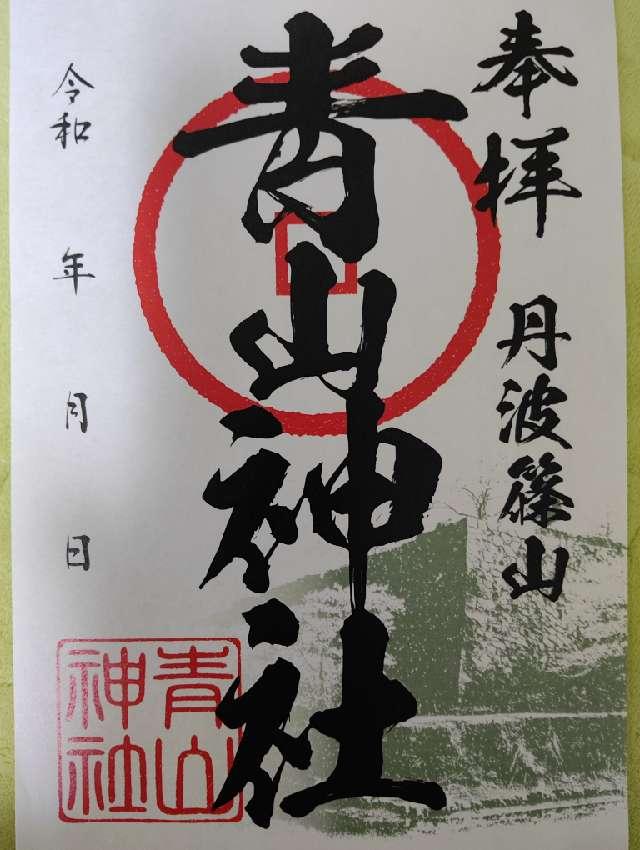 奉拝 丹波篠山
青山神社
令和 年 月 日
青山
神社